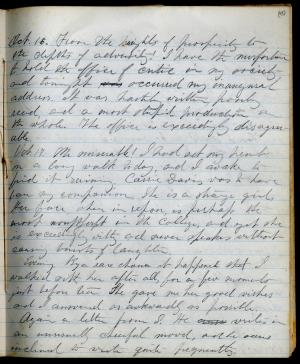 Oct. 16. From the heights of prosperity to
the depths of adversity. I have the misfortune
to hold the office of critic in my society
and tonight occurred my inaugural
address. It was hastily written, poorly
read, and a most stupid production on
the whole. The office is exceedingly disagree-
able.
Oct. 17. Me miserable! I had set my heart
on a long walk today, and I awoke to
find it raining. Carrie Davis was to have
been my companion. She is a strange girl.
Her face when in repose is perhaps the
most in the College, and yet she
is exceedingly witty and never speaks without
causing bursts of laughter.
Eve. By rare chance it happened that I
walked with her after all, for a few moments
just before tea. She gave me her good wishes
and I answered as awkwardly as possible.
Again a letter from J. He writes in
an unusually cheerful mood, and he seems
inclined to write quite frequently.